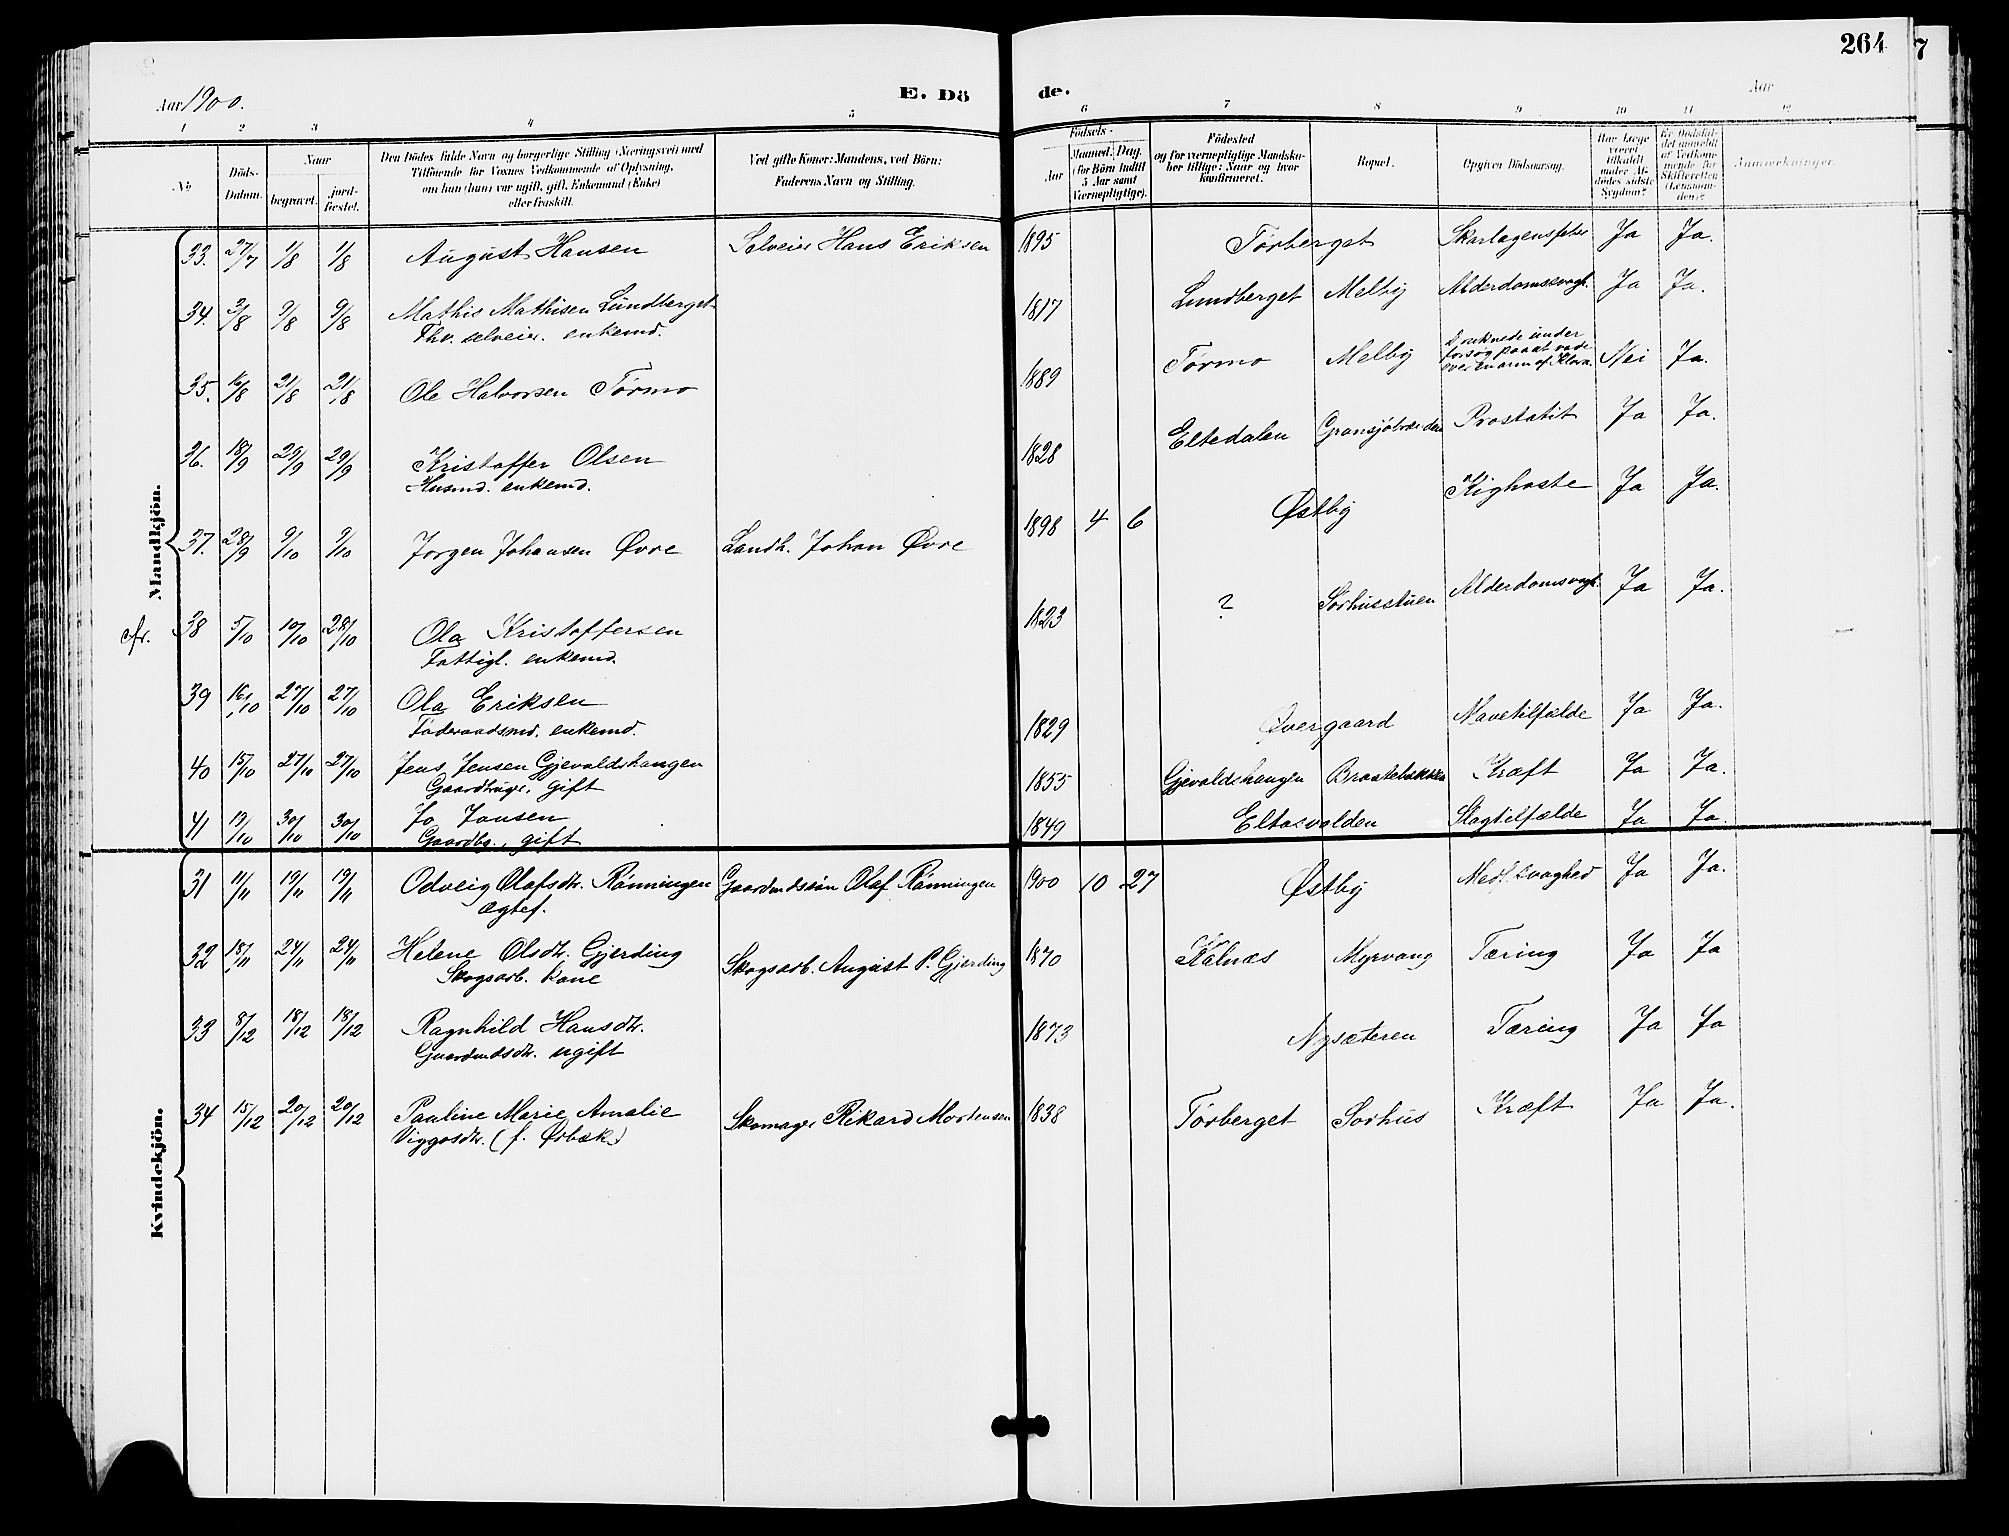 264
7
Aar 1900.
E. Dö
de.
Aar
1 2 3 4 5 6 7 8 9 10 11 12
No
Döds-Datum.
Naar
begravet.
jord-fæstet.
Den Dödes fulde Navn og borgerlige Stilling (Næringsvei) med
Tilföiende for Voxnes Vedkommende af Oplysning,
om han (hun) var ugift, gift, Enkemand (Enke)
eller fraskilt.
Ved gifte Koner: Mandens, ved Börn:
Faderens Navn og Stilling.
Födsels-
Aar
Maaned. Dag.
(for Börn indtil
5 Aar samt
Værnepligtige).
Födested
og for værnepligtige Mandskaber tillige: Naar og hvor
konfirmeret.
Bopæl.
Opgiven Dödsaarsag.
Har Læge
været
tilkaldt
under Afdödes sidste
Sygdom?
Er Dödsfaldet anmeldt
af Vedkommende for
Skifteretten
(Lensmanden)?
Anmærkninger.
Mandkjön.
33. 27/7 1/8 1/8 August Hansen Selveier Hans Eriksen 1895 Törberget Skarlagensfeber Ja Ja.
34. 3/8 9/8 9/8 Mathis Mathisen Lundberget 1817 Lundberget Melby Alderdomssvagh. Ja Ja.
Fhv. selveier. enkemd.
35. 16/8 21/8 21/8 Ole Halvorsen Törmo 1889 Törmo Melby Druknede under
forsög paa at vade
over en arm af Klara. Nei Ja.
36. 18/9 29/9 29/9 Kristoffer Olsen 1828 Eltedalen Gransjöbræden Prostatit Ja Ja.
Husmd. enkemd.
37. 28/9 9/10 9/10 Jörgen Johansen Øvre Landh. Johan Øvre 1898 4 6 Østby Kighoste Ja Ja.
cfr. 38 5/10 10/10 28/10 Ola Kristoffersen 1823 ? Sörhusstuen Alderdomsvagh. Ja Ja.
Fattigl. enkemd.
39 16/10 27/10 27/10 Ola Eriksen 1829 Øvergaard Mavetilfælde Ja Ja.
Föderaadsmd. enkemd.
40 15/10 27/10 27/10 Jens Jensen Gjevaldshaugen 1855 Gjevaldshaugen Braatebakken Kræft Ja Ja.
Gaardbruger, gift
41 19/10 30/10 30/10 Jo Jonsen 1849 Eltasvolden Slagtilfælde Ja Ja.
Gaardbr., gift
Kvindekjön.
31 11/11 19/11 19/11 Odveig Olafsdtr. Rönningen Gaardmdssön Olaf Rönningen 1900 10 27 Østby Medf. svaghed Ja Ja.
ægtef.
32 18/11 24/11 24/11 Helene Olsdtr. Gjerding Skogsarb. August P. Gjerding 1870 Kalnæs Myrvang Tæring Ja Ja
Skogsarb. kone
33 8/12 18/12 18/12 Ragnhild Hansdtr. 1873 Nysæteren Tæring Ja Ja
Gaardmdsdtr. ugift
34 15/12 20/12 20/12 Pauline Marie Amalie Skomager Rikard Mortensen 1838 Törberget Sörhus Kræft Ja Ja.
Viggosdtr. (f. Ørbæk)